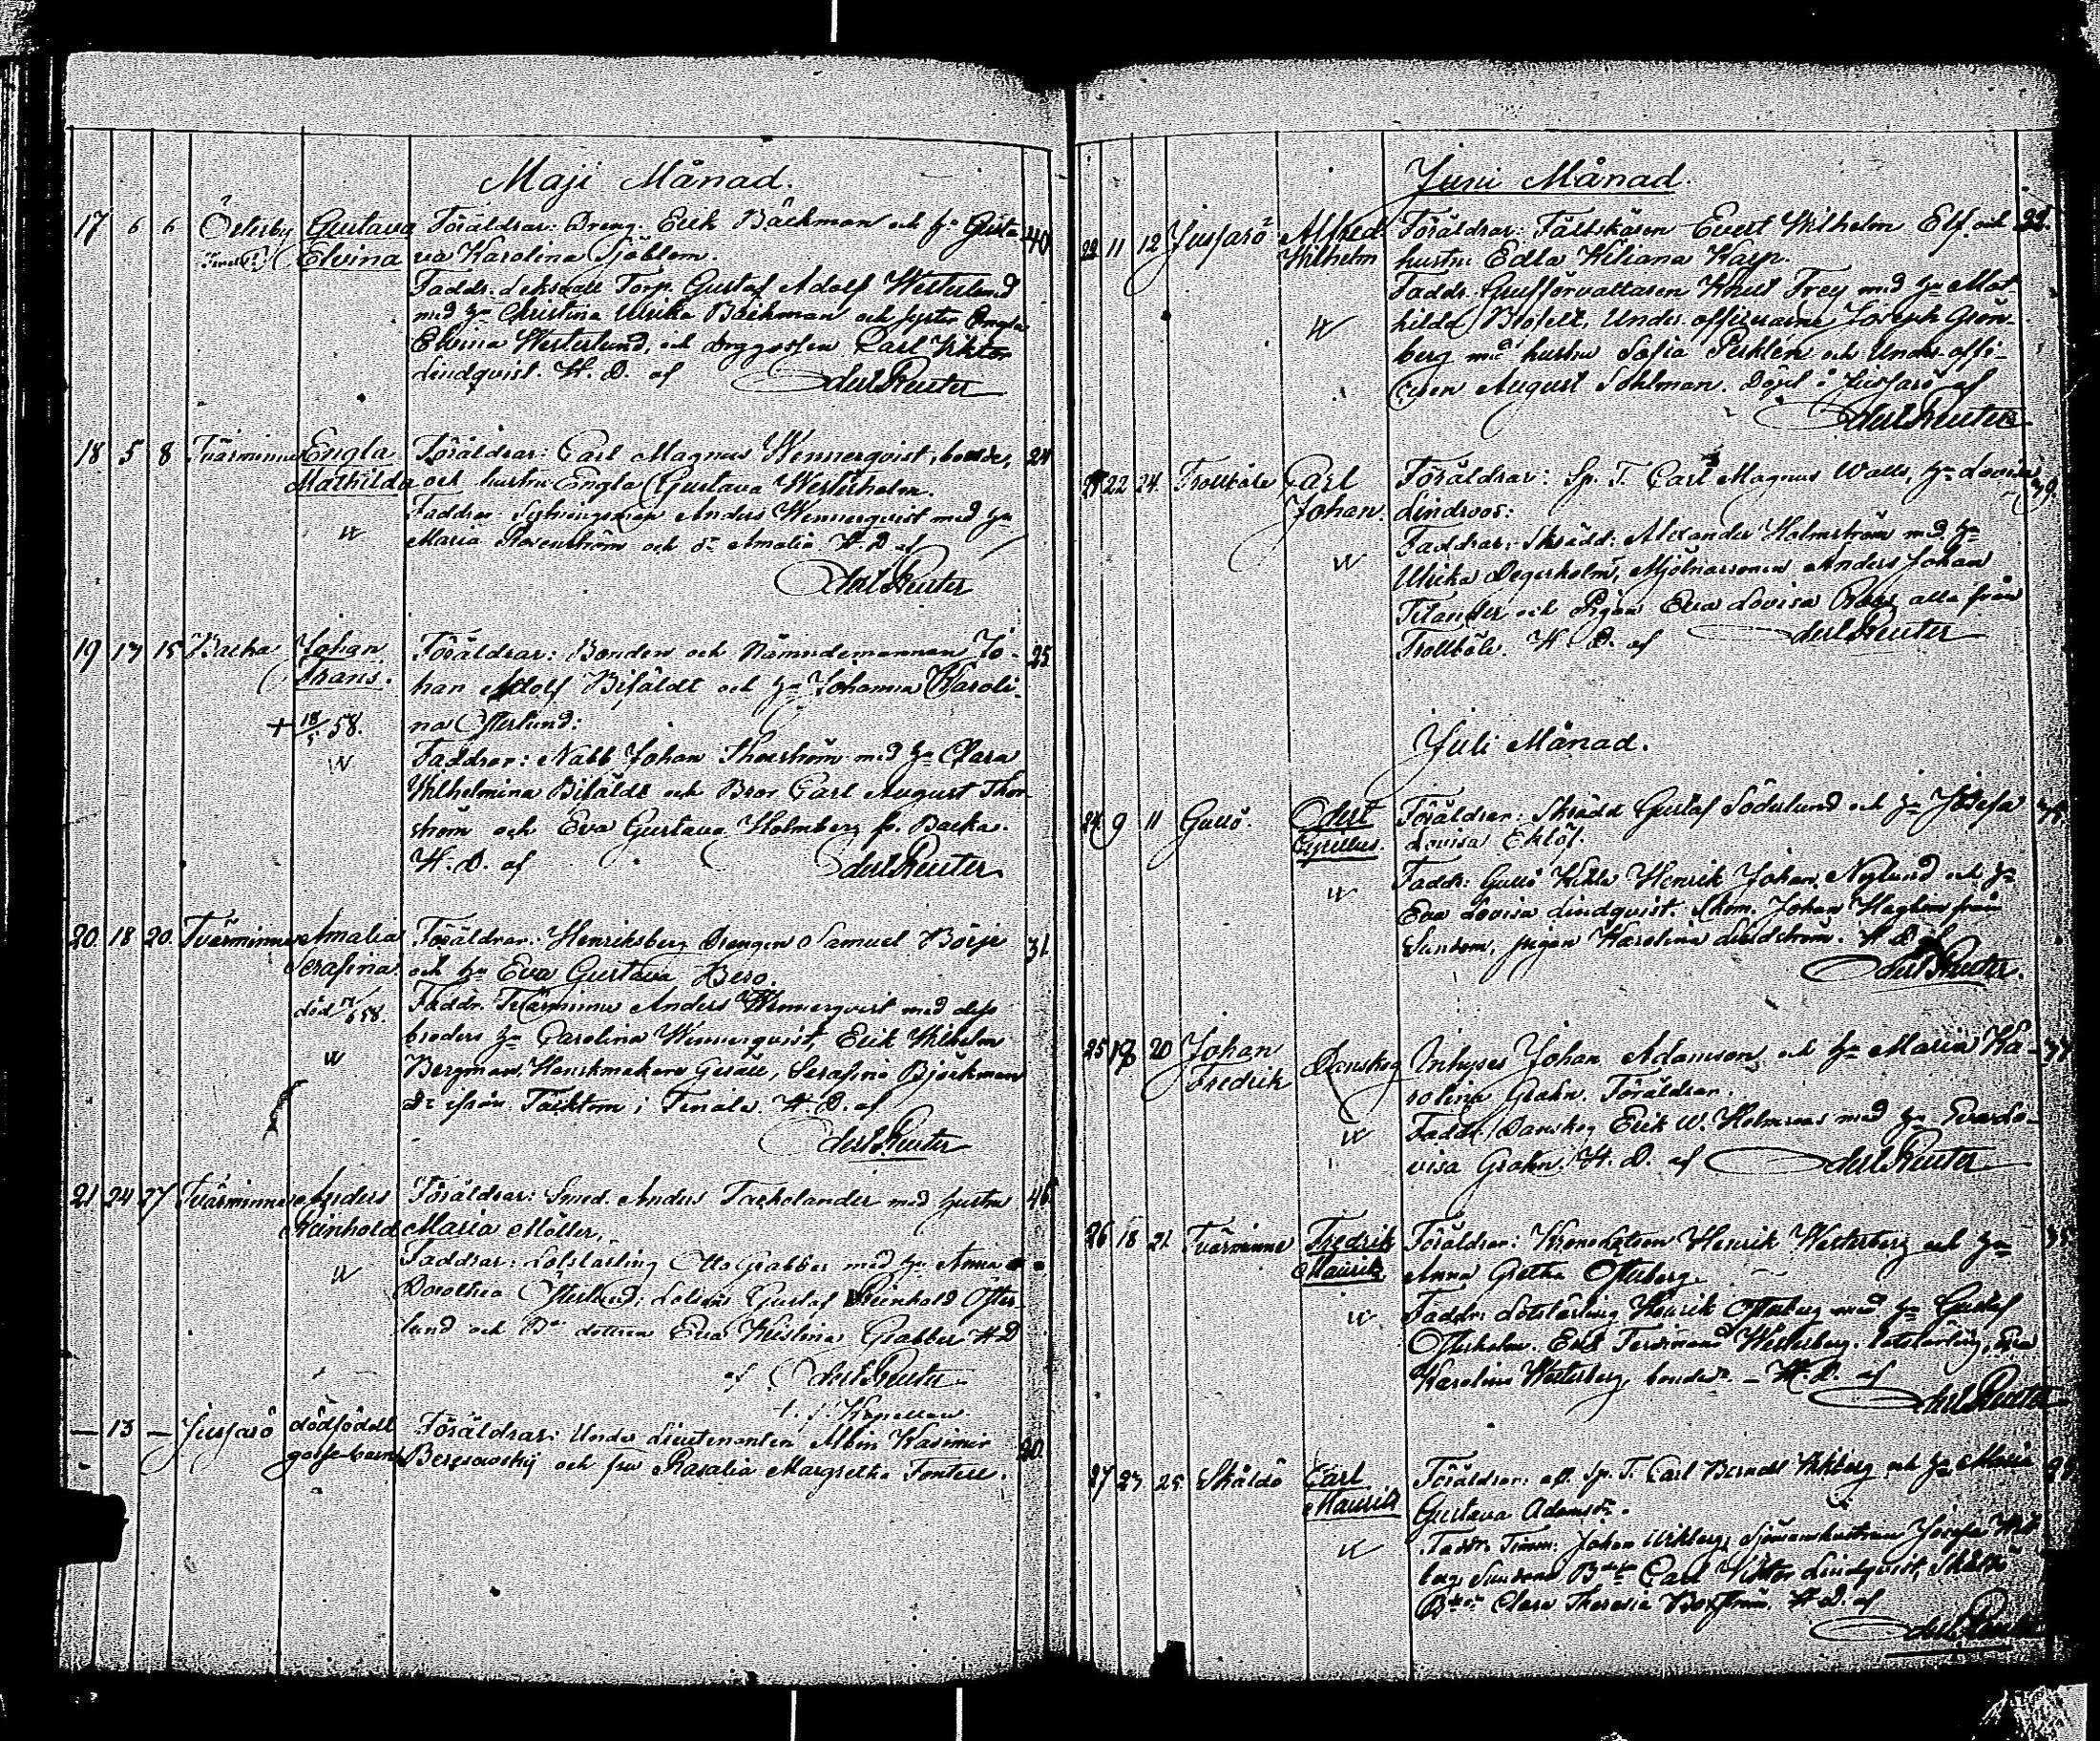 Maji Månad.
17 6 6 Österby Gustava Föräldrar: Dreng. Erik Bäckman och h: Gusta- 40
Elvina va Karolina Sjöblom.
Faddr. Leksvall Torp. Gustaf Adolf Westerlund
med h: Christina Ulrika Bäckman och syster Engla
Elvina Westerlund, och drggossen Carl Viktor
Lindqvist. H. D. af Reuter
18 5 8 Tvärminne Engla Föräldrar: Carl Magnus Wennerqvist, bonde, 24
Mathilda och hustru Engla Gustava Westerholm.
Faddrar Anders Wennerqvist med h:
Maria Rosenström och d: Amalia H. D. af
Reuter
19 13 15 Backa Johan Föräldrar: Bonden och Nämndemannen Jo- 25
Frans. han Adolf Bifäldt och h: Johanna Karoli-
+ 18/5 58. na Österlund:
Faddrar: Nabb Johan Thorström med h: Clara
Wilhelmina Bifäldt och Bror Carl August Thor-
ström och Eva Gustava Holmberg fr. Backa.
H. D. af Reuter
20. 18 20. Tvärminne Amalia Föräldrar: Henriksberg Drengen Samuel Börje 31.
Serafina. och h: Eva Gustava Berg.
död 58. Faddr. Tvärminne Anders Wennerqvist med dess
broders h: Carolina Wennerqvist, Erik Wilhelm
Bergman, Hanskmakare Gesäll, Serafina Björkman
ifrån Täcktom i Tenala. H. D. af
Reuter
21 24 27 Tvärminne Anders Föräldrar: Smed. Anders Tackolander med hustru 46
Reinhold Maria Möller,
Faddrar: Lotslärling Otto Grabber med h: Anna
Dorothea Österlund; Lotsen Gustaf Reinhold Öster-
lund och dottren Eva Kristina Grabber H. D
af Reuter
— 13 — Jussarö dödfödt Föräldrar: Under Lieutenanten Albin Kasimir 30.
gosse-barn och fru Rosalia Margretha Fontell.
Juni Månad.
22 11 12 Jussarö Alfred Föräldrar: Fältskären Evert Wilhelm Elf. och 22.
Wilhelm hustru Edla Kiliana Karp.
Faddr. Gruförvaltaren Knut Frey med h: Mat-
hilda Blofelt, Under-officerarne Joseph Grön-
berg med hustru Sofia Perklén och Under-offi-
ceren August Sohlman. Döpt i Jussarö af
Reuter
22 24. Trollböle Carl Föräldrar: Sp. T. Carl Magnus Walls, h: Lovisa 39.
Johan. Lindroos:
Faddrar: Skrädd: Alexander Holmström med h:
Ulrika Degerholm, Mjölnaresonen Anders Johan
Titander och Pigan Eva Lovisa alla från
Trollböle. H. D. af Reuter
Juli Månad.
24. 9 11 Gullö. Odert Föräldrar: Skrädd Gustaf Söderlund och h: Josefa
Cyrillus. Lovisa Eklöf.
Faddr: Gullö Henrik Johan Nylund och h:
Eva Lovisa Lindqvist. Johan från
Sunbom, pigan Karolina Lindström. H. D. af
Reuter.
25 18 20 Johan Danskog Inhyses Johan Adamson och h: Maria Ka-
Fredrik rolina Grahn. Föräldrar.
Faddr Danskog Erik W. Holmroos med h: Eva Lo-
visa Grahn. H. D. af Reuter
26 18 21. Tvärminne Fredrik Föräldrar: Kronolotsen Henrik Westerberg och h:
Maurits Anna Gretha Österberg.
Faddr: Lotslärling Henrik Österberg med h: Gustaf
Österholm. Erik Ferdinand Westerberg. Lotslärling, Eva
Karolina Westerberg, bonded. – H. D. af
Reuter
27 23. 25. Skåldö Carl Föräldrar: aff. Sp. T. Carl Berndt Wikberg och h: Maria
Maurits Gustava Adamsd.
Faddr. Timm: Johan Wikberg, Sjömanshustrun Josefa Wik-
berg, Carl Viktor Lindqvist, Skåldö
Clara Theresia Boström. H. D. af
Reuter